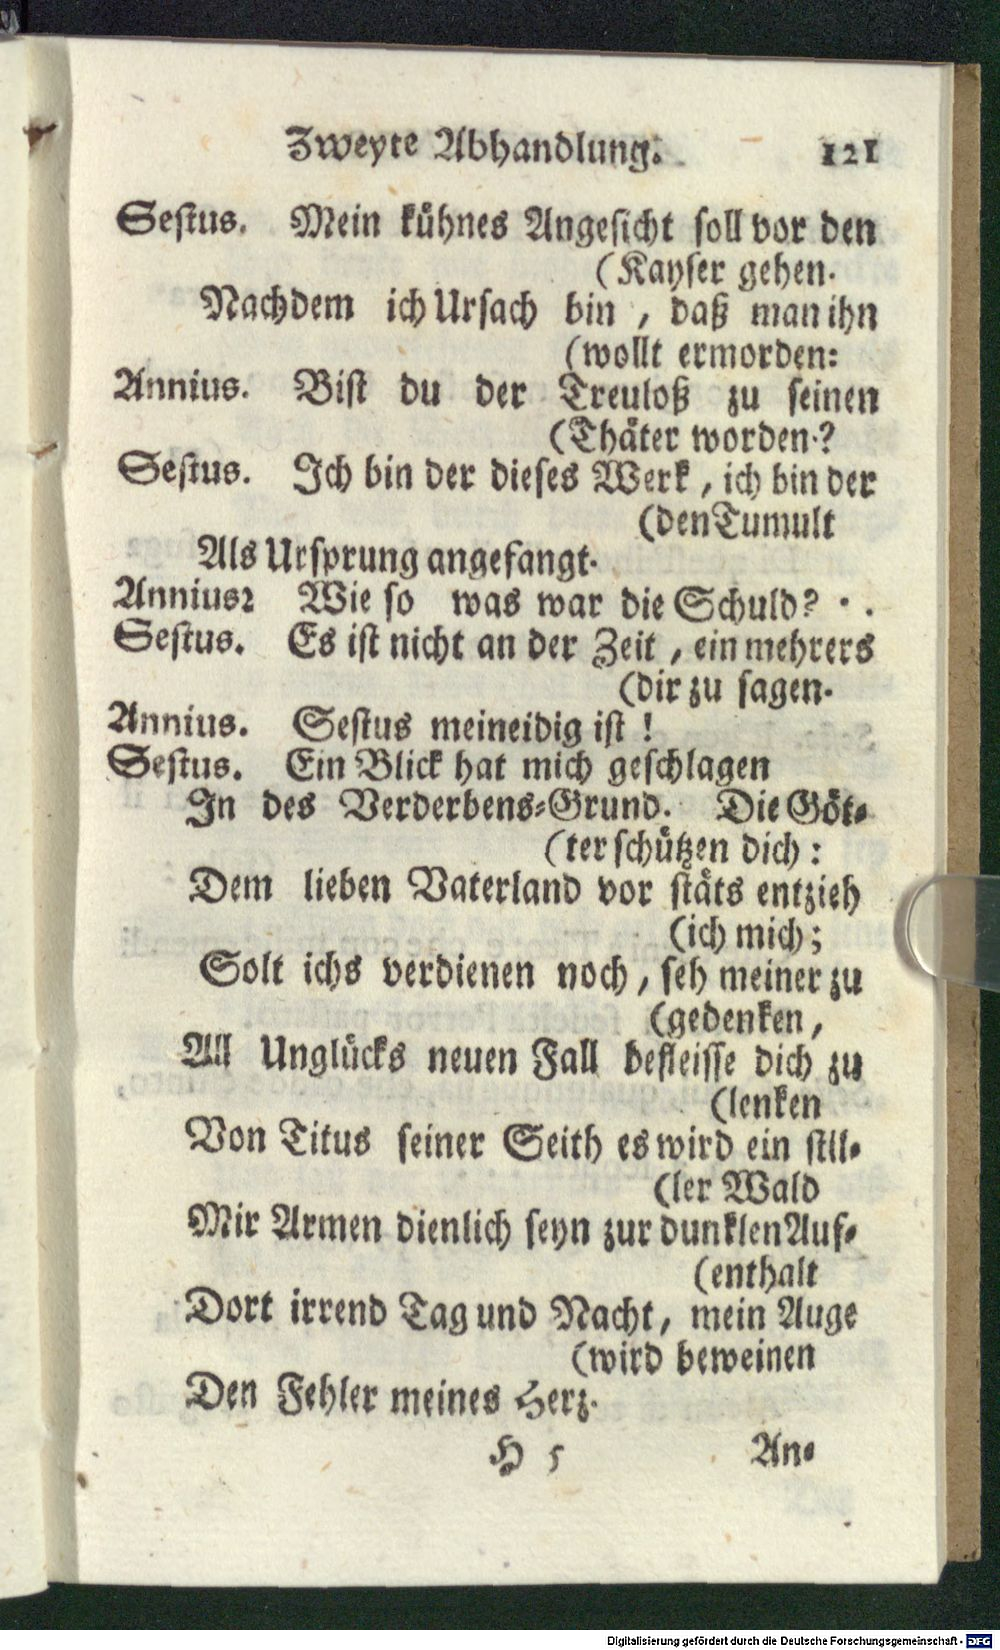 Zweyte Abhandlung. 121
Sestus. Mein kühnes Angesicht soll vor den
(Kayser gehen.
Nachdem ich Ursach bin, daß man ihn
(wollt ermorden:
Annius. Bist du der Treuloß zu seinen
(Thäter worden.?
Sestus. Ich bin der dieses Werk, ich bin der
(den Tumult
Als Ursprung angefangt.
Annius: Wie so was war die Schuld? . .
Sestus. Es ist nicht an der Zeit, ein mehrers
(dir zu sagen.
Annius. Sestus meineidig ist !
Sestus. Ein Blick hat mich geschlagen
In des Verderbens-Grund. Die Göt-
(ter schützen dich :
Dem lieben Vaterland vor stäts entzieh
(ich mich;
Solt ichs verdienen noch, seh meiner zu
(gedenken,
All Unglücks neuen Fall befleisse dich zu
(lenken
Von Titus seiner Seith es wird ein stil-
(ler Wald
Mir Armen dienlich seyn zur dunklen Auf-
(enthalt
Dort irrend Tag und Nacht, mein Auge
(wird beweinen
Den Fehler meines Herz.
H 5 An-
Digitalisierung gefördert durch die Deutsche Forschungsgemeinschaft - DFG